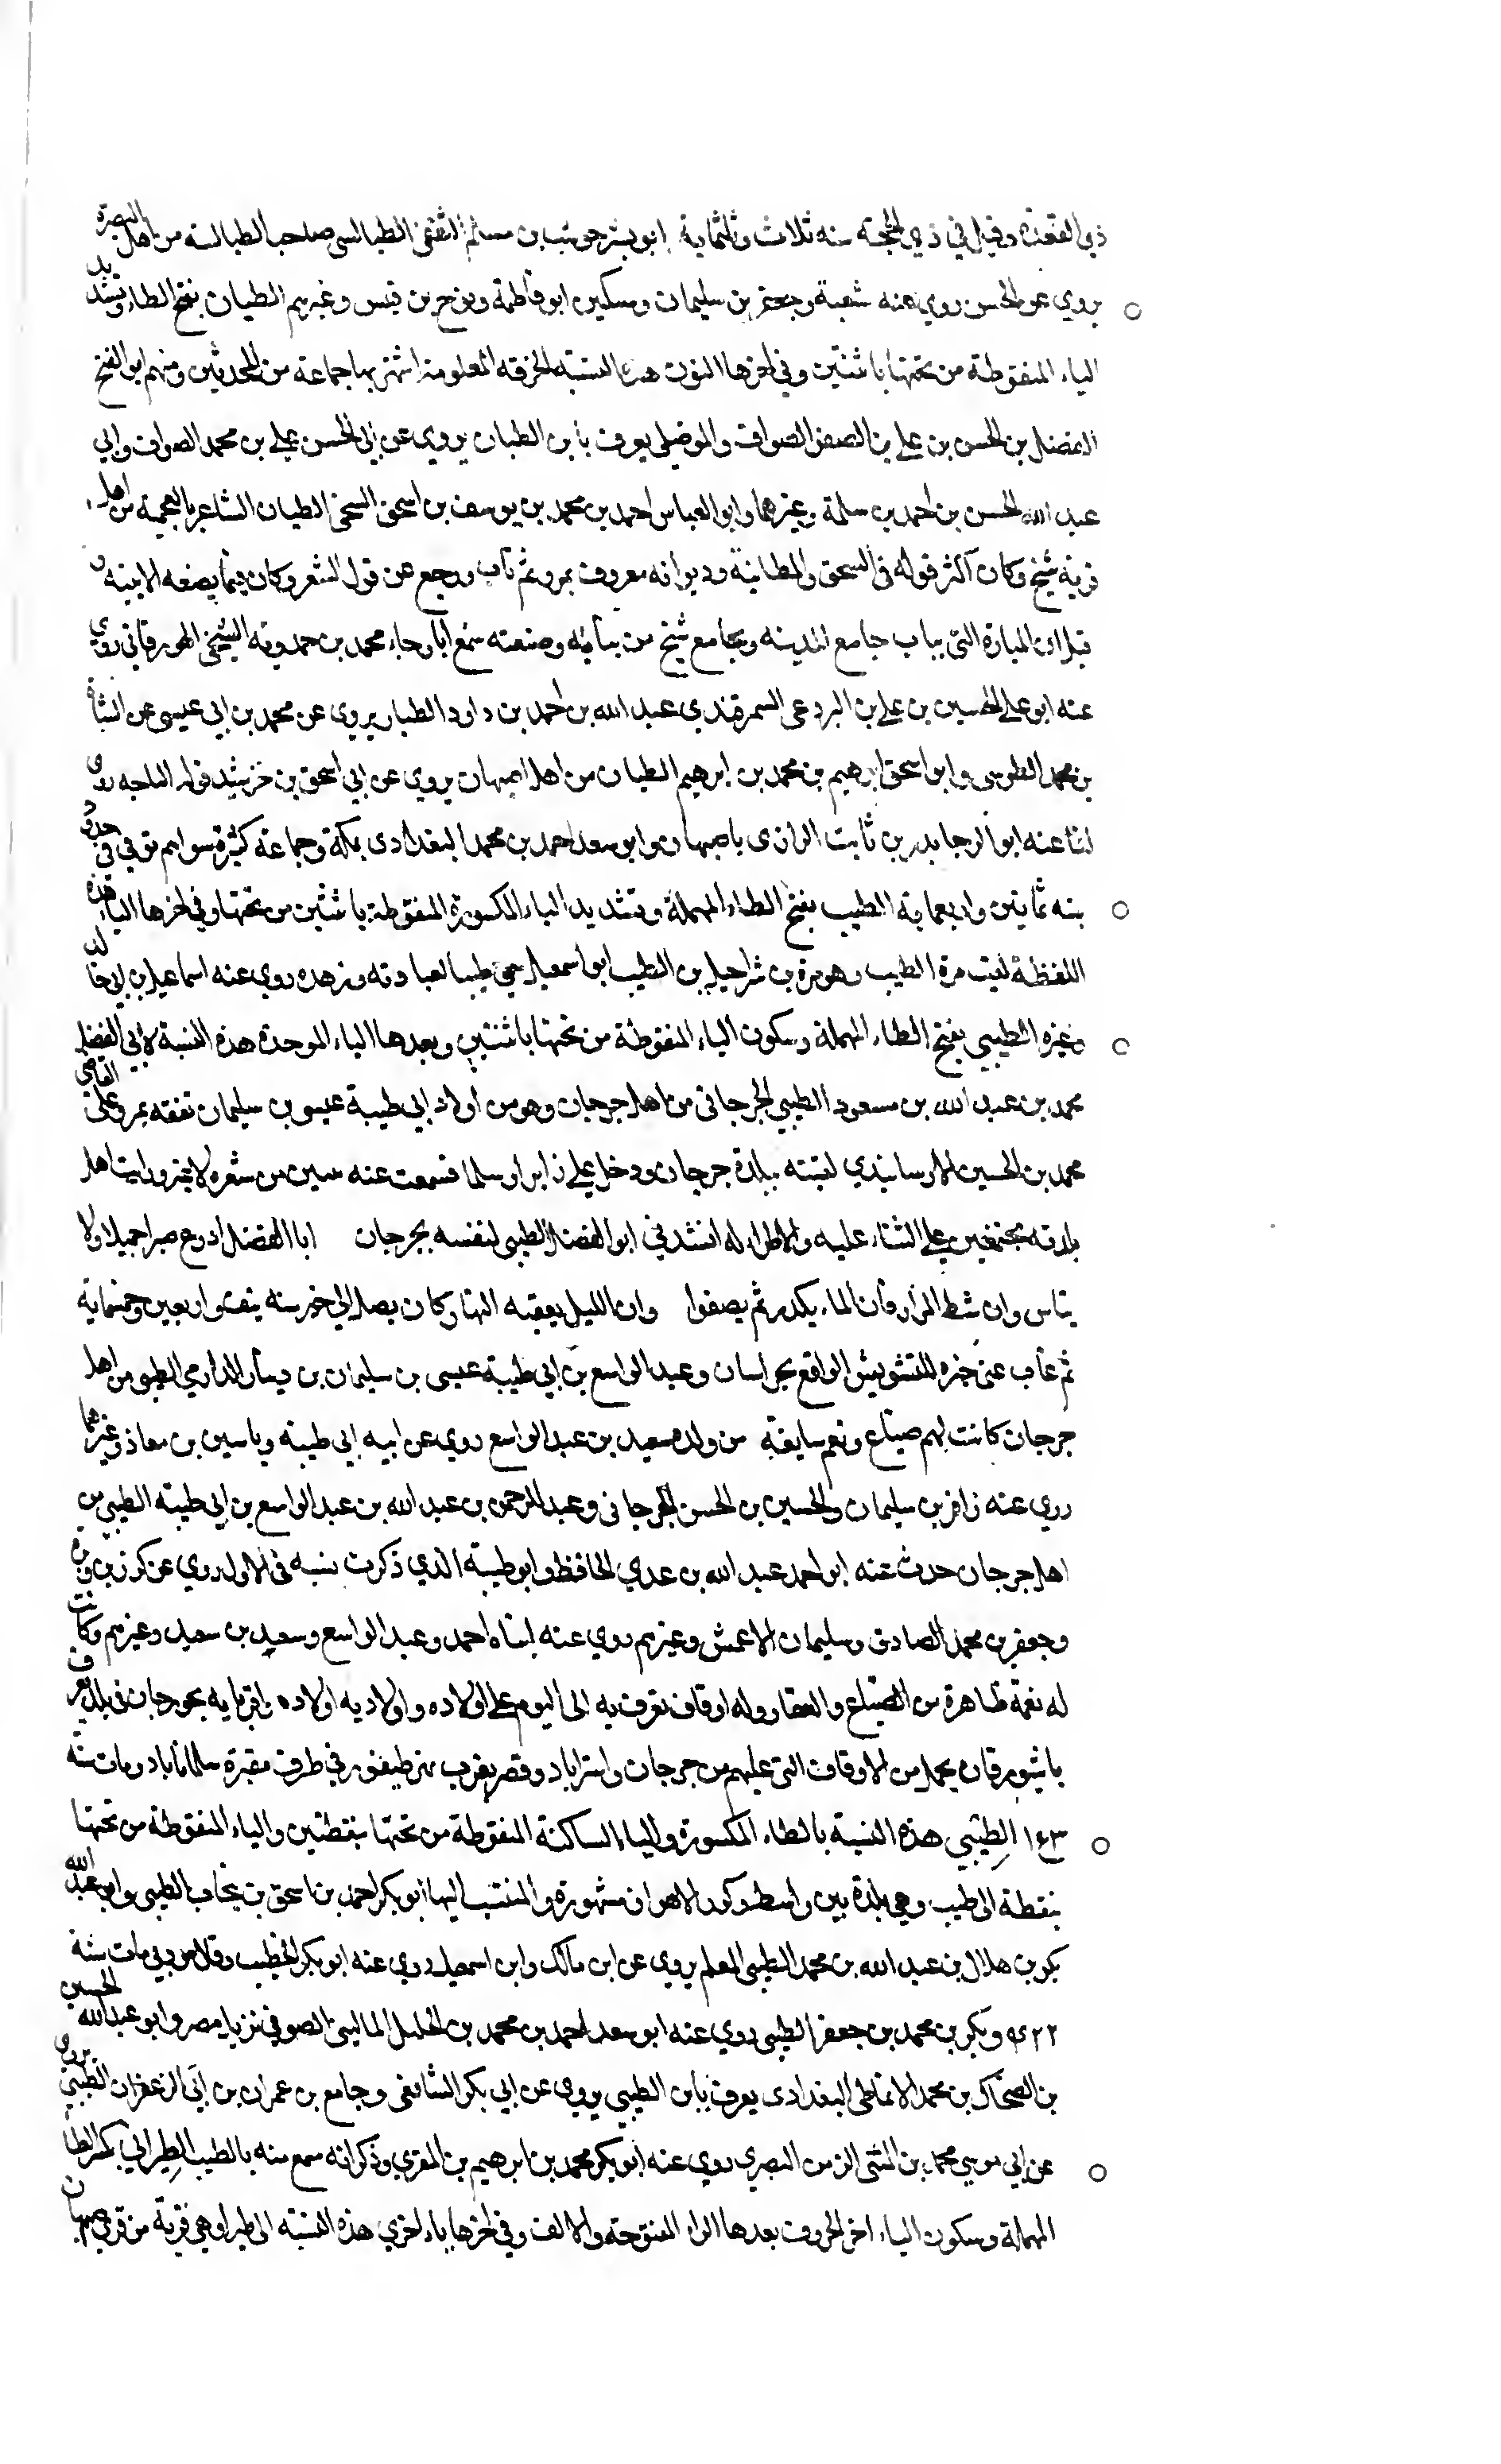 ذي القعدة وقيل في ذي الحجة سنه ثلاث وثلثماية ابو بشر حوشب بن مسلم الثقفي الطيالسي صاحب الطيالسة من اهل البصرة
يروي عن الحسن روي عنه شعبة وجعفر بن سليمان ومسكين ابو فاطمة ونوح بن قيس وغيرهم الطيان بفتح الطاء وتشديد
الياء المنقوطة من تحتها باثنتين وفي اخرها النون هذه النسبة الحرفه المعلومة اشتهر بها جماعة من المحدثين ومنهم ابو الفتح
المفضل بن الحسن بن علي بن الصواف والموصلي يعرف بابن الطيان يروي عن ابي الحسن علي بن محمد الصواف وابي
عبد الله الحسن بن احمد بن سلمة وغيرهما وابو العباس احمد بن محمد بن يوسف بن اسحق الطيان الشاعر بالعجمية من اهل
قرية شيخ وكان اكثر قوله في السحق والمطانبة وديوانه معروف بمرو ثم تاب ورجع عن قول الشعر وكان فيما يصنعه الابنية و
قيل ان المنارة التي بباب جامع المدينه وبجامع شيخ من بنائه وصنعته سمع ابا رجاء محمد بن حمدويه الشيخي الهورقاني روي
عنه ابو علي الحسين بن علي بن البردعي السمرقندي عبد الله بن احمد بن داود الطيان يروي عن محمد بن ابي عيسى عن
بن محمد الطوسي وابو اسحق ابرهيم بن محمد بن ابرهيم الطيان من اهل اصبهان يروي عن ابي اسحق بن خرشيد قوله التاجه روى
لنا عنه ابو الرجا بدر بن ثابت الرازى باصبهان وابو سعد احمد بن محمد البغدادى بمكة وجماعة كثيرة سواهم توفي في حدود
سنه ثمانين واربعماية الطيب بفتح الطاء المهملة وتشديد الياء المكسورة المنقوطة باثنتين من تحتها وفي اخرها الباء هذه
اللفظة لقب مرة الطيب وهو مرة بن شراحيل بن الطيب ابو اسمعيل سمي طيبا لعبادته وزهده روي عنه اسماعيل بن ابي خالد
وغيره الطيبي بفتح الطاء المهملة وسكون الياء المنقوطة من تحتها باثنتين وبعدها الباء الموحدة هذه النسبة لابي الفضل
محمد بن عبد الله بن مسعود الطيبي الجرجانى من اهل جرجان وهو من اولاد ابي طيبة عيسى بن سليمان تفقه بمرو على القاضي
محمد بن الحسين الارسابندي لقيته ببلدة جرجان ودخل علي فسمعت عنه من شعره لا غير ورايت اهل
بلدته مجتمعين علي الثناء عليه والاطراء له انشدني ابو الفضل الطيبي لنفسه بجرجان ابا الفضل ادرع صبرا جميلا ولا
يتاس وان شط المزار فان الماء يكدر ثم يصفوا وان الليل يعقبه النهار وكان يصل الي خبر سنه نيف واربعين وخمسماية
ثم غاب عني خبره للتشويش الواقع بخراسان وعبد الواسع بن ابي طيبة عيسى بن سليمان بن دينار الدارمي الطيبي من اهل
جرجان كانت لهم ضياع ونعم سابغة من ولده سعيد بن عبد الواسع روي عن ابيه ابي طيبة وياسين بن معاذ وغيرهما
روي عنه زافر بن سليمان والحسين بن الحسن الجرجانى وعبد الرحمن بن عبد الله بن عبد الواسع بن ابي طيبة الطيبي من
اهل جرجان حدث عنه ابو احمد عبد الله بن عدي الحافظ وابو طيبة الذي ذكرت نسبه في الاول روي عن كرز بن وبرة
وجعفر بن محمد الصادق وسليمان الاعمش وغيرهم روي عنه ابناه احمد وعبد الواسع وسعيد بن سعيد وغيرهم وكانت
له نعمة ظاهرة من الضياع والعقار وله اوقاف تعرف به الى اليوم علي اولاده واولاد اولاده واقربايه بجورجان في بلد يعرف
باشبورقان يحمل من الاوقاف التي عليهم من جرجان واستراباد وقصر بقرب نهر طيفور في طرف مقبرة سليماناباد ومات سنه
١٤٣ الطيبي هذه النسبة بالطاء المكسورة والياء الساكنة المنقوطة من تحتها بنقطتين والباء المنقوطة من تحتها
بنقطة الى طيب وهي بلدة بين واسط وكور الاهواز مشهورة والمنتسب اليها ابو بكر احمد بن اسحق بن نيخاب الطيبي وابو عبد الله
بكر بن هلال بن عبد الله بن محمد الطيبي المعلم يروي عن ابن مالك وابن اسمعيل روي عنه ابو بكر الخطيب ومات سنة
وبكر بن محمد بن جعفر الطيبي روي عنه ابو سعد احمد بن محمد بن الخليل الماليني الصوفي نزيل مصر وابو عبد الله الحسين
بن الضحاك بن محمد الانماطي البغدادى يعرف بابن الطيبي يروي عن ابي بكر الشافعي وجامع بن عمران بن ابي الزعفران الطيبي يروي
عن ابي موسي محمد بن المثنى الزمن البصري روي عنه ابو بكر محمد بن ابرهيم بن المقري وذكر انه سمع منه بالطيب الطيرابي بكسر الطاء
المهملة وسكون الياء اخر الحروف بعدها الراء المفتوحة والالف وفي اخرها ياء اخري هذه النسبة الى طيرا وهي قرية من قرى اصبهان